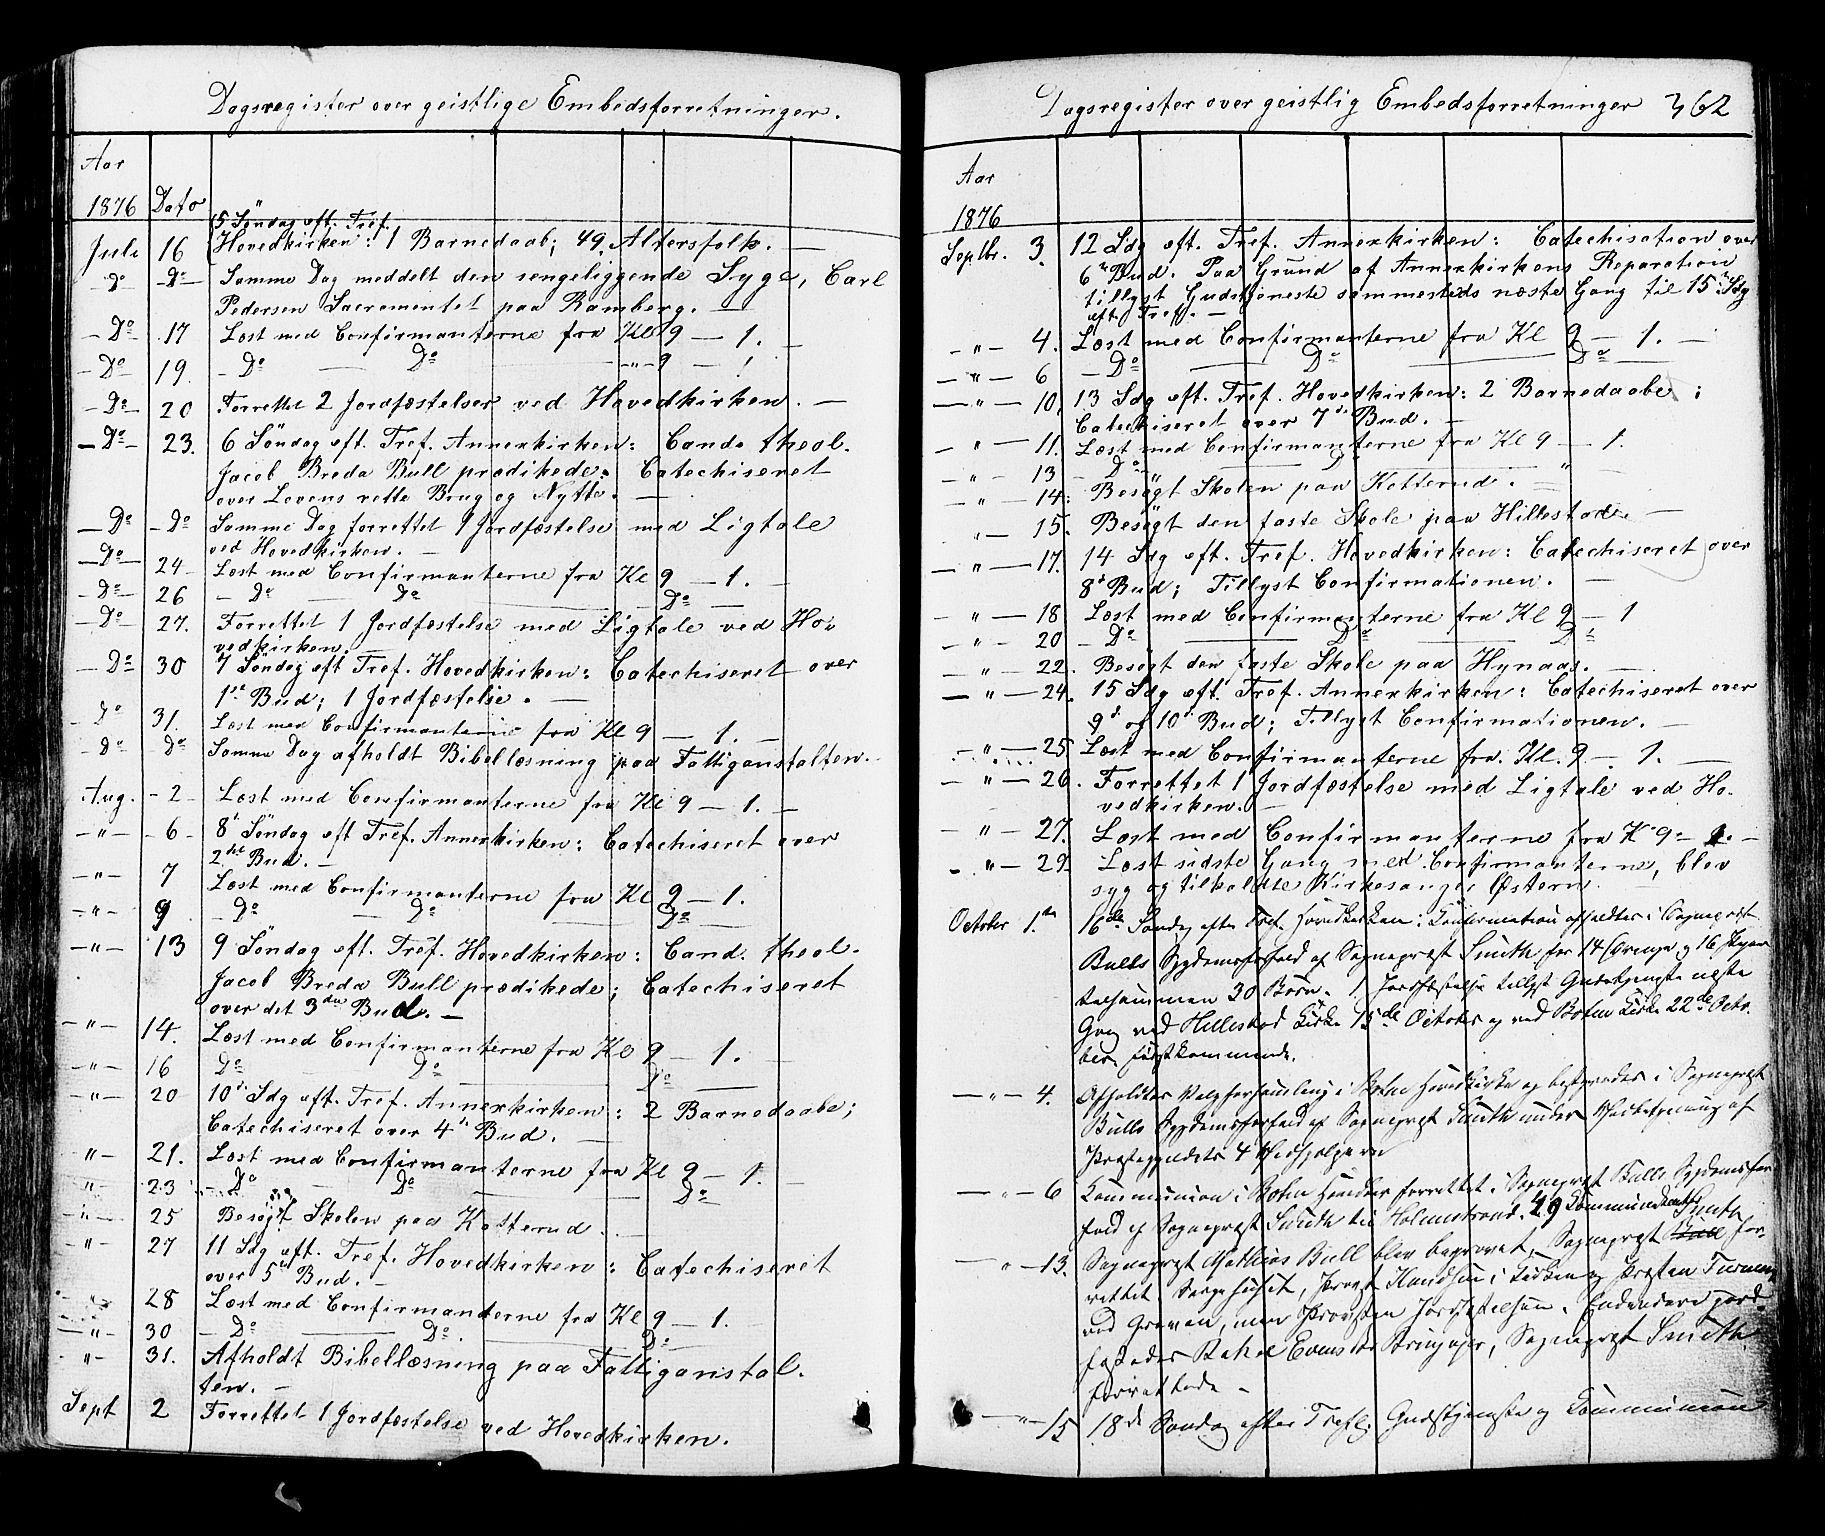 Dagsregister over geistlige Embedsforretninger.
Aar
1876 Dato
5 Søndag eft. Tref.
Juli 16 Hovedkirken: 1 Barnedaab; 49 Altersfolk. —
- Do - Do - Samme Dag meddelt den sengeliggende Syge, Carl
Pedersen Sacramentet paa Ramberg. —
- Do - 17 Læst med Confirmanterne fra Kl 9 — 1. —
- Do - 19. - Do — Do - " - 9 — 1
- Do - 20 Forrettet 2 Jordfæstelser ved Hovedkirken. —
- Do - 23. 6 Søndag eft. Tref. Annexkirken: Cand. theol.
Jacob Breda Bull prædikede. Catechiseret
over Lovens rette Brug og Nytte. —
- Do - Do Samme Dag forrettet 1 Jordfæstelse med Ligtale
ved Hovedkirken. —
- Do - 24 Læst med Confirmanterne fra Kl 9 — 1. —
- Do - 26 - Do — Do — Do —
- Do - 27. Forrettet 1 Jordfæstelse med Ligtale ved Ho-
vedkirken. —
- Do 30 7 Søndag eft Tref. Hovedkirken: Catechiseret over
1ste Bud; 1 Jordfæstelse. —
- Do 31. Læst med Confirmanterne fra Kl 9 — 1. —
- Do Do Samme Dag afholdt Bibellæsning paa Fattiganstalten.
Aug. - 2 - Læst med Confirmanterne fra Kl 9 — 1. —
- " - - 6 - 8d Søndag eft Tref. Annexkirken: Catechiseret over
2det Bud. —
- " - 7 Læst med Confirmanterne fra Kl 9 — 1.
- " - 9 - Do — Do — Do —
- " - 13 9 Søndag eft. Tref. Hovedkirken: Cand. theol.
Jacob Breda Bull prædikede; Catechiseret
over det 3die Bud. —
- " - 14. Læst med Confirmanterne fra Kl 9 — 1. —
- " - 16 Do — Do — Do —
- " - 20 10d Sdg eft. Tref. Annexkirken: 2 Barnedaabe;
Catechiseret over 4d Bud. —
" - 21. Læst med Confirmanterne fra Kl 9 — 1.
" - 23 - Do — Do — Do
- " - 25 Besøgt Skolen paa Kotterud. —
" - 27 11 Sdg eft. Tref. Hovedkirken: Catechiseret
over 5d Bud. —
28 Læst med Confirmanterne fra Kl 9 — 1.
- " - 30 - Do — Do. — Do —
- " 31. Afholdt Bibellæsning paa Fattiganstal.
ten. —
Sept 2 Forrettet 1 Jordfæstelse ved Hovedkirken.
Dagsregister over geistlig Embedsforretninger 362
Aar
1876
Septbr. 3. 12 Sdg eft. Tref. Annexkirken: Catechisation over
6te Bud. Paa Grund af Annexkirkens Reparation
tillyst Gudstjeneste sammesteds næste Gang til 15de Sdg
eft. Tref. —
- " - 4. Læst med Confirmanterne fra Kl 9 — 1. —
- " - 6 - Do — Do — Do —
- " - 10, 13 Sdg eft. Tref. Hovedkirken: 2 Barnedaabe;
Catechiseret over 7de Bud. —
- " - 11. Læst med Confirmanterne fra Kl 9 — 1.
- " - 13 - Do " — " —
- " - 14: Besøgt Skolen paa Kotterud. —
- " - 15. Besøgt den faste Skole paa Hillestad. —
- " - 17. 14 Sdg eft. Tref. Hovedkirken: Catechiseret over
8d Bud; Tillyst Confirmationen. —
- " - 18 Læst med Confirmanterne fra Kl 9 — 1
- " - 20 - Do — Do — Do
- " - 22. Besøgt den faste Skole paa Hynaas. —
- " - 24. 15 Sdg eft. Tref. Annexkirken: Catechiseret over
9d og 10d Bud; Tillyst Confirmationen. —
- " - 25 Læst med Confirmanterne fra. Kl. 9 — 1. —
- " - 26. Forrettet 1 Jordfæstelse med Ligtale ved Ho-
vedkirken. —
- " - 27. Læst med Confirmanterne fra Kl 9 — 1. —
- " - 29 Læst sidste Gang med Confirmanterne, blev
syg og tilkaldte Kirkesanger Østern
October 1ste 16de Søndag efter Tref. Hovedkirken: Confirmation afholdtes i Sognepræst
Bulls Sygdomsforfald af Sognepræst Smith for 14 Drenge og 16 Piger
tilsammen 30 Børn. 1 Jordfæstelse tillyst Gudstjeneste næste
Gang ved Hillestad Kirke 15de October og ved Botne Kirke 22de Octo-
ber førstkommende.
- " - 4. Afholdtes Valgforsamling i Botne Hovedkirke og bestyredes i Sognepræst
Bulls Sygdomsforfald af Sognepræst Smith under Medbetjening af
Præstegjeldets 4 Medhjælpere
- " - 6 Communion i Botne Hovedkirke forrettet i Sognepræst Bulls Sygdomsfor-
fald af Sognepræst Smith til Holmestrand. 29 Communicanter
- " - 13. Sognepræst Mathias Bull blev begravet, Sognepræst Smith for-
rettet i Sørgehuset, Provst Knudsen i Kirken og Præsten
ved Graven, men Provsten Jordfæstelsen. Endvidere jord-
fæstedes Sognepræst Smith
forrettede —
- " - 15 18de Søndag efter Tref. Gudstjeneste og Communion